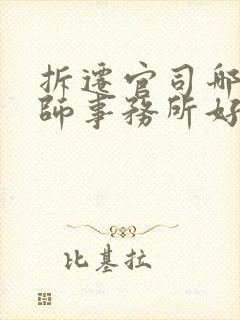 拆遷官司哪
師事務所好
比基拉